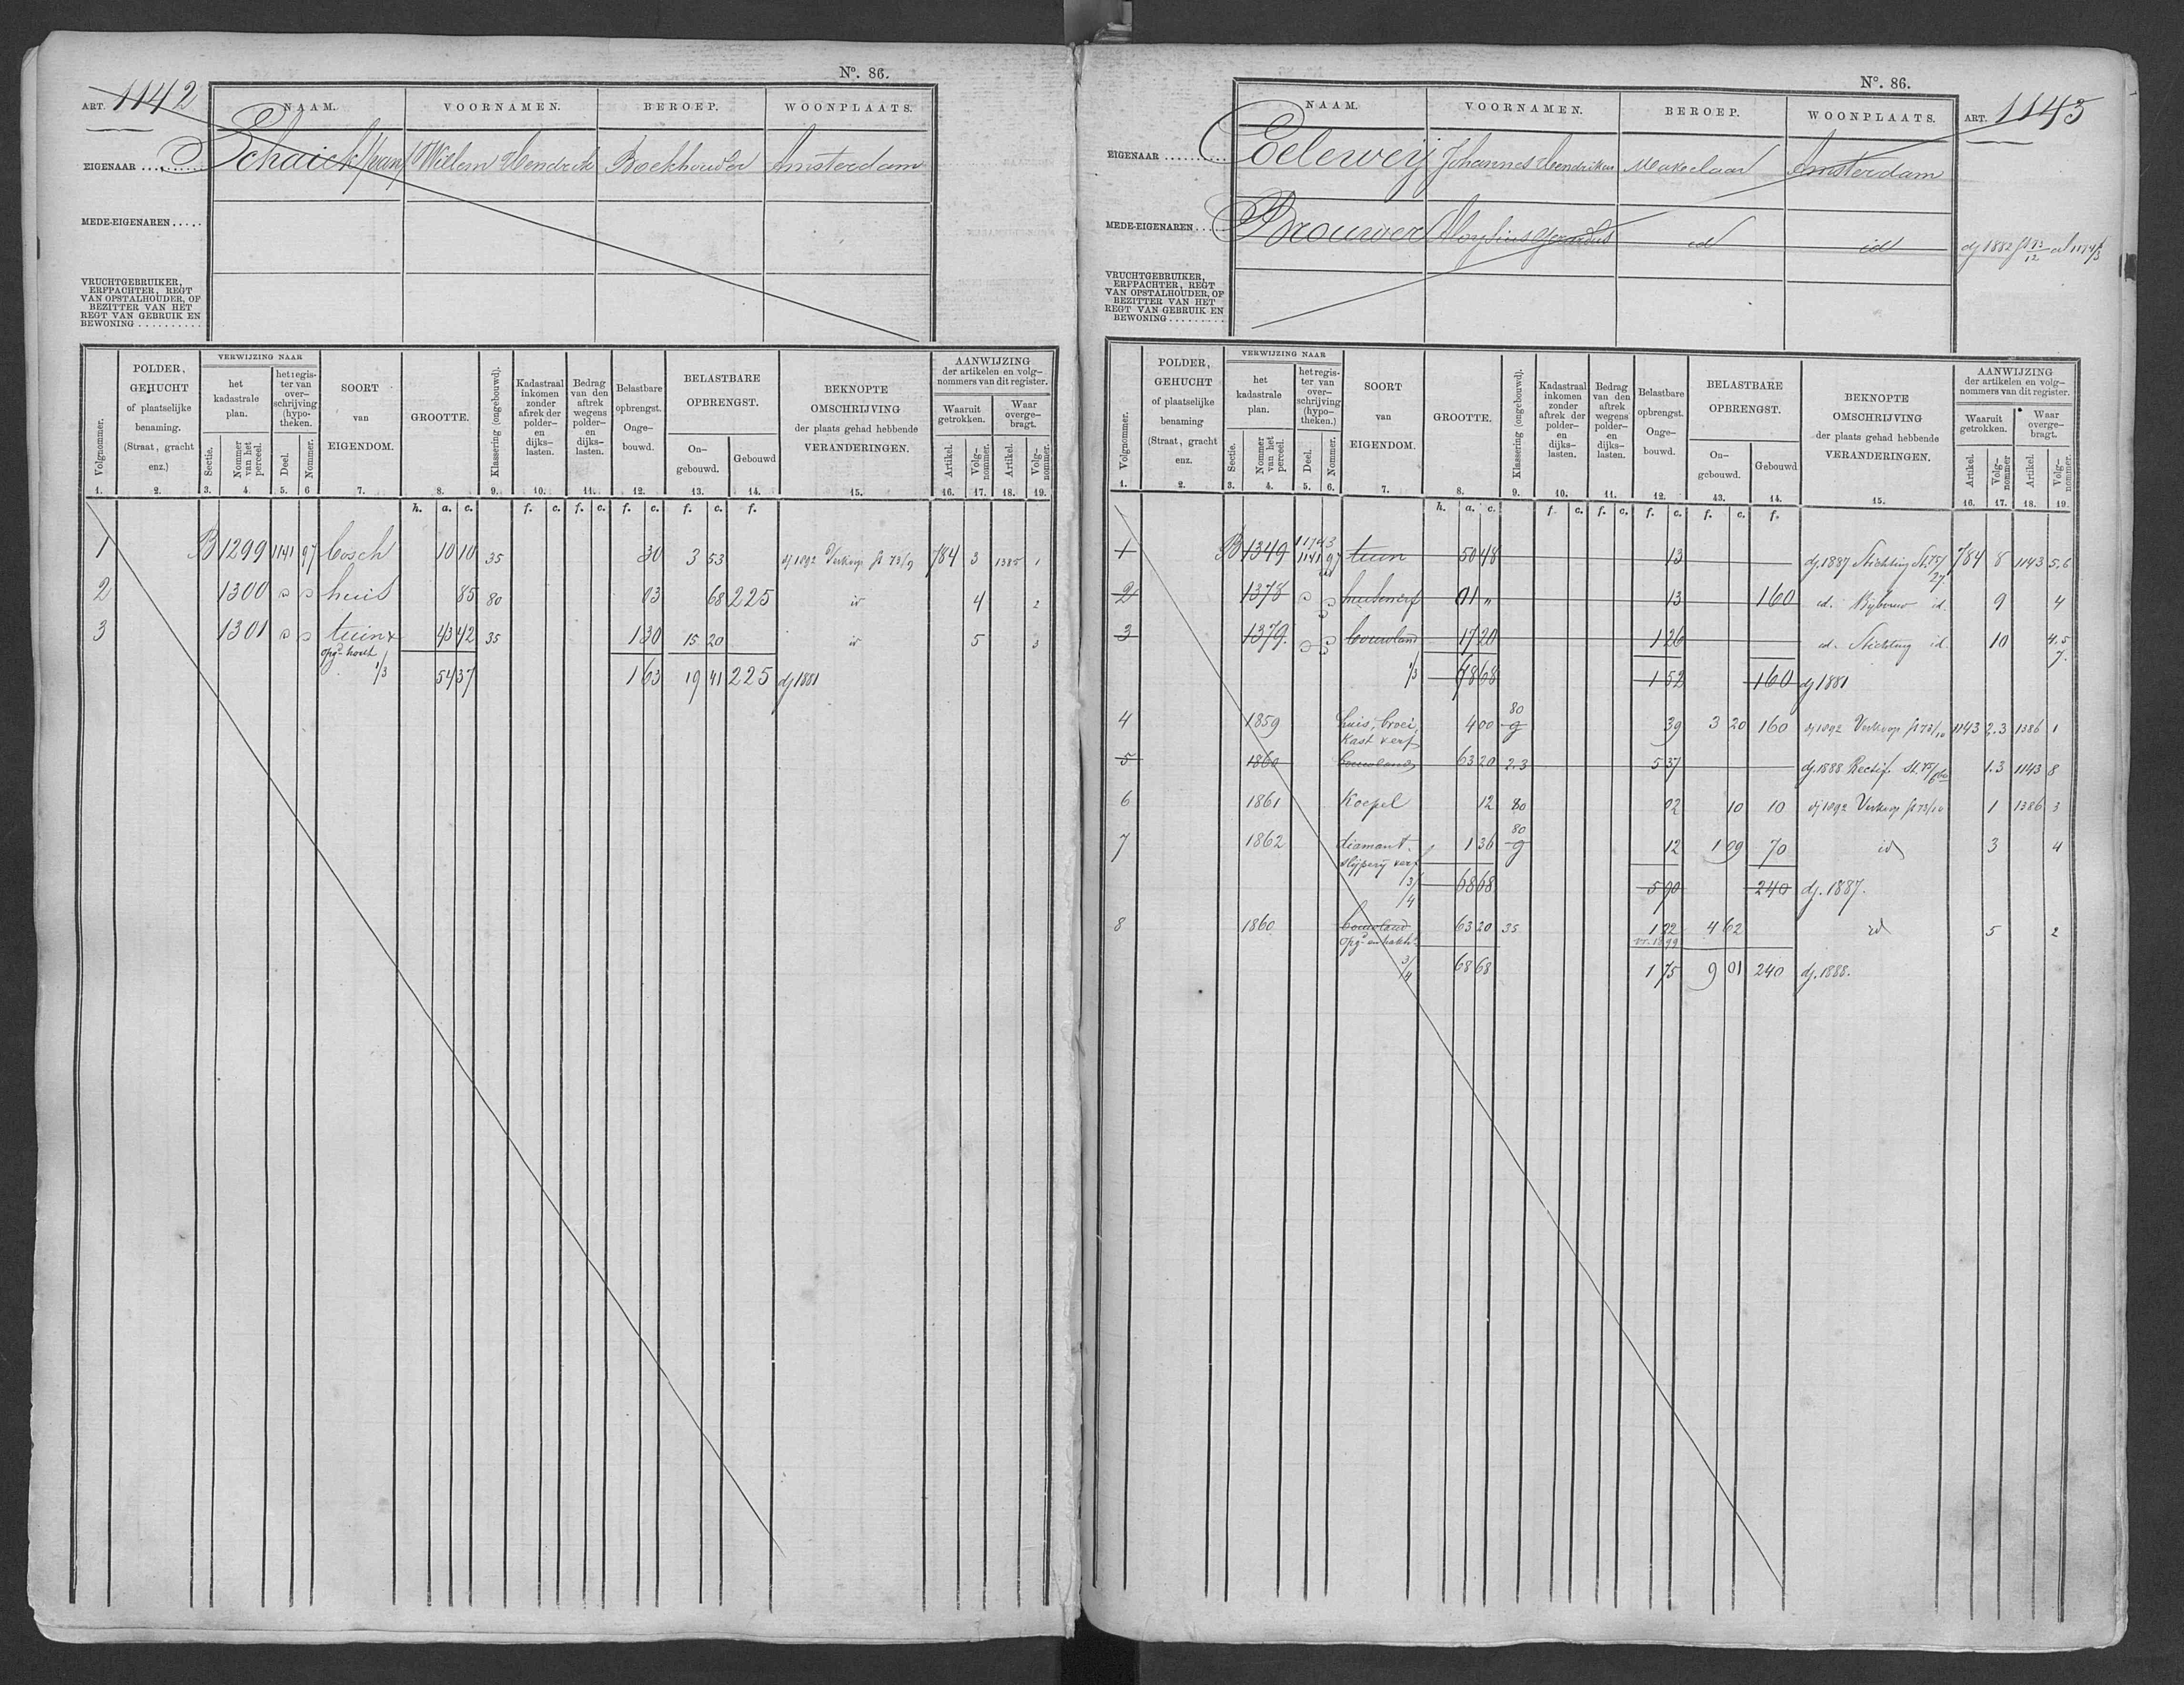 Nº. 86.
ART. 1142
NAAM. VOORNAMEN. BEROEP. WOONPLAATS.
EIGENAAR Schaick Willem Hendrik Boekhouder Amsterdam
MEDE-EIGENAREN
VRUCHTGEBRUIKER,
ERFPACHTER, REGT
VAN OPSTALHOUDER, OF
BEZITTER VAN HET
REGT VAN GEBRUIK EN
BEWONING
Volgnommer.
POLDER,
GEHUCHT
of plaatselijke
benaming.
(Straat, gracht
enz.)
VERWIJZING NAAR
het
kadastrale
plan.
Sectie.
Nommer
van het
perceel.
het regis-
ter van
over-
schrijving
(hypo-
theken.)
Deel.
Nommer.
SOORT
van
EIGENDOM.
GROOTTE.
Klassering (ongebouwd).
Kadastraal
inkomen
zonder
aftrek der
polder-
en
dijks-
lasten.
Bedrag
van den
aftrek
wegens
polder-
en
dijks-
lasten.
Belastbare
opbrengst.
Onge-
bouwd.
BELASTBARE
OPBRENGST.
On-
gebouwd.
Gebouwd
BEKNOPTE
OMSCHRIJVING
der plaats gehad hebbende
VERANDERINGEN.
AANWIJZING
der artikelen en volg-
nommers van dit register.
Waaruit
getrokken.
Waar
overge-
bragt.
Artikel.
Volg-
nommer.
Artikel.
Volg-
nommer.
1. 2. 3. 4. 5. 6 7. 8. 9. 10. 11. 12. 13. 14. 15. 16. 17. 18. 19.
h. a. c. f. c. f. c. f. c. f. c. f.
1 B 1299 1141 97 bosch 10 10 35 30 3 53 dj 1892 Verkoop st 73/9 784 3 1385 1
2 1300 huis 85 80 03 68 225 id 4 2
3 1301 tuin & 43 42 35 1 30 15 20 id 5 3
opg. hout
1/3 54 37 1 63 19 41 225 dj 1881
Nº. 86.
ART. 1143
NAAM. VOORNAMEN. BEROEP. WOONPLAATS.
EIGENAAR Eeleweij Johannes Hendrikus Makelaar Amsterdam
MEDE-EIGENAREN Brouwer Aloysius Gerardus id id
VRUCHTGEBRUIKER,
ERFPACHTER, REGT
VAN OPSTALHOUDER, OF
BEZITTER VAN HET
REGT VAN GEBRUIK EN
BEWONING
Volgnommer.
POLDER,
GEHUCHT
of plaatselijke
benaming
(Straat, gracht
enz.
VERWIJZING NAAR
het
kadastrale
plan.
Sectie.
Nommer
van het
perceel.
het regis-
ter van
over-
schrijving
(hypo-
theken.)
Deel.
Nommer.
SOORT
van
EIGENDOM.
GROOTTE.
Klassering (ongebouwd).
Kadastraal
inkomen
zonder
aftrek der
polder-
en
dijks-
lasten.
Bedrag
van den
aftrek
wegens
polder-
en
dijks-
lasten.
Belastbare
opbrengst.
Onge-
bouwd.
BELASTBARE
OPBRENGST.
On-
gebouwd.
Gebouwd
BEKNOPTE
OMSCHRIJVING
der plaats gehad hebbende
VERANDERINGEN.
AANWIJZING
der artikelen en volg-
nommers van dit register.
Waaruit
getrokken.
Waar
overge-
bragt.
Artikel.
Volg-
nommer
Artikel.
Volg-
nommer.
1. 2. 3. 4. 5. 6. 7. 8. 9. 10. 11. 12. 13. 14. 15. 16. 17. 18. 19.
h. a. c. f. c. f. c. f. c. f. c. f.
1 B 1349 1141 97 tuin 50 48 13 dj. 1887 Stichting St. 75/27 784 8 1143 5.6
2 1378 huis en erf 01 " 13 160 id. Bijbouw id. 9 4
3 1379. bouwland 17 20 1 26 id. Stichting id. 10 4.5
7.
1/3 68 68 1 52 160 dj 1881
4 1859 huis, broei 4 00 80 39 3 20 160 dj 1892 Verkoop st 73/10 1143 2.3 1386 1
kast & erf
5 1860 bouwland 63 20 2.3 5 37 dj. 1888 Rectif. 1.3 1143 8
6 1861 Koepel 12 80 02 10 10 dj 1892 Verkoop st 73/10 1 1386 3
7 1862 diamant- 1 36 80 12 1 09 70 id 3 4
slijperij & erf
3/4 68 68 5 90 240 dj. 1887.
8 1860 bouwland 63 20 35 1 22 4 62 id 5 2
3/4 68 68 1 75 9 01 240 dj. 1888.